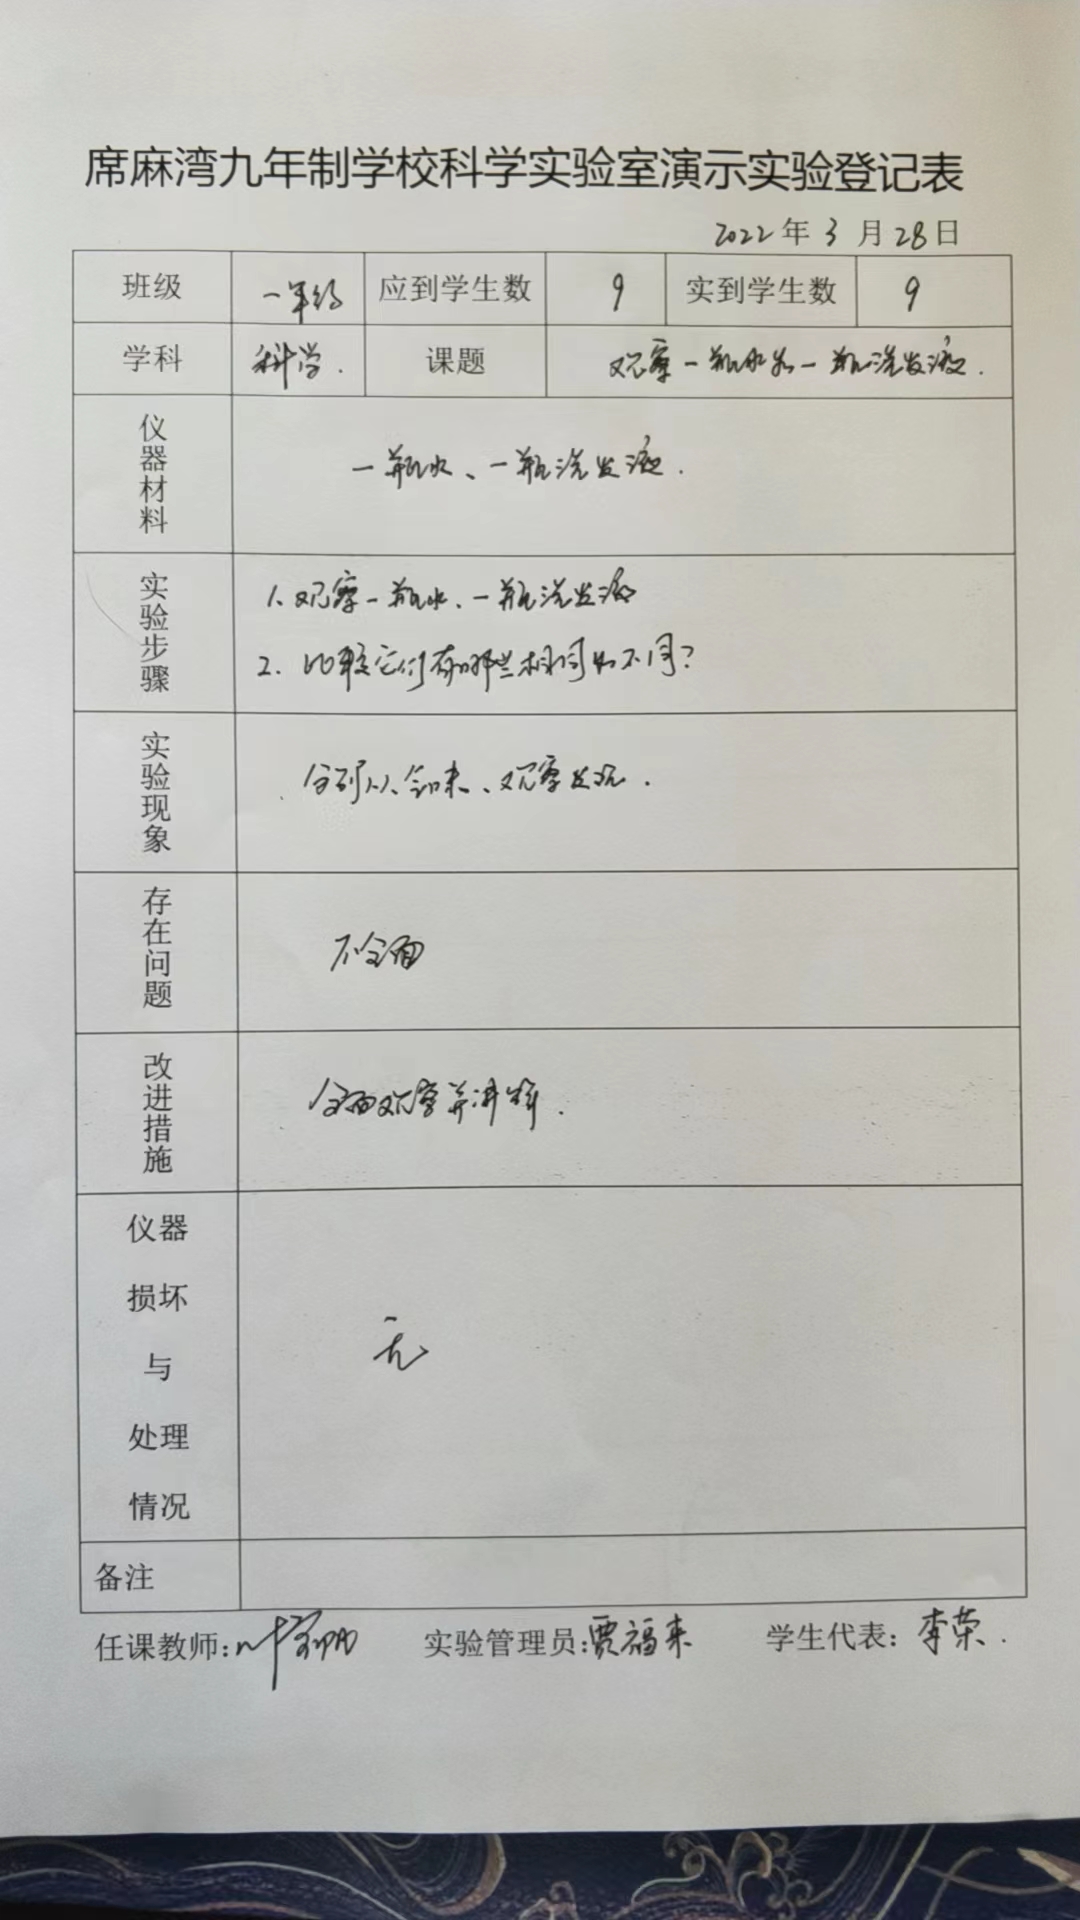 席麻湾九年制学校科学实验室演示实验登记表
2022年3月28日
班级 一年级 应到学生数 9 实到学生数 9
学科 科学. 课题 观察一瓶水和一瓶洗发液.
仪器材料 一瓶水、一瓶洗发液.
实验步骤 1.观察一瓶水、一瓶洗发液
2.比较它们有哪些相同和不同?
实验现象 分别从、气味、观察发现.
存在问题 不全面
改进措施 全面观察并
仪器损坏与处理情况 无
备注
任课教师:叶 实验管理员:贾福来 学生代表:李荣.